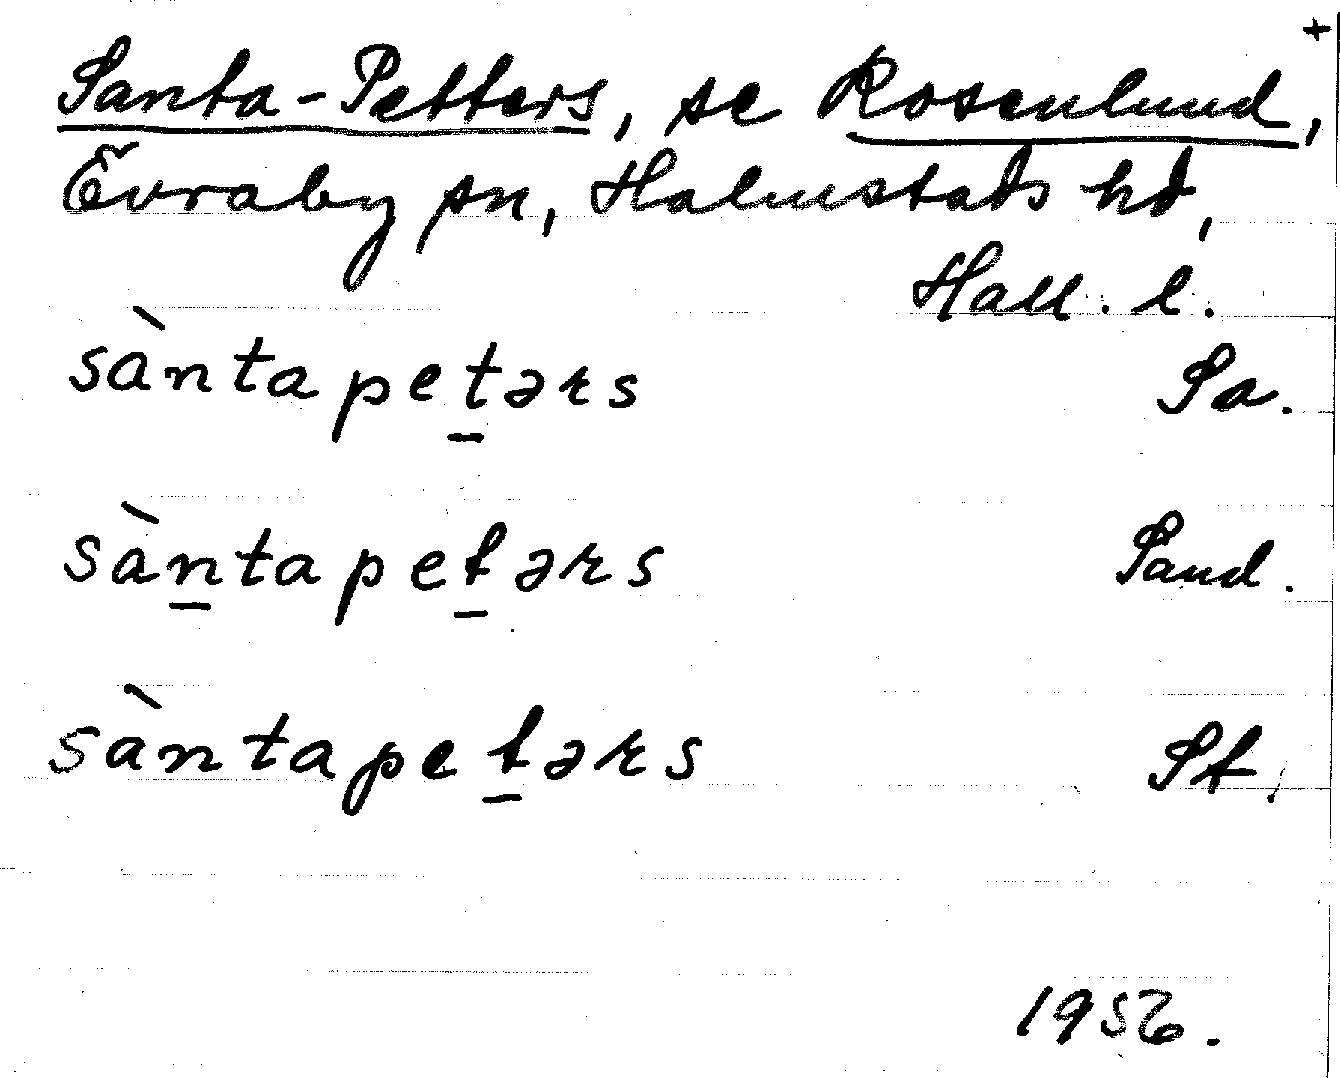 +
Santa-Petters, se Rosenlund,
Evraby sn, Halmstads hd,
Hall. l.
sàntapet̠ərs Sa.
sàn̠tapet̠ərs Sand.
sàntapet̠ərs St.
1956.